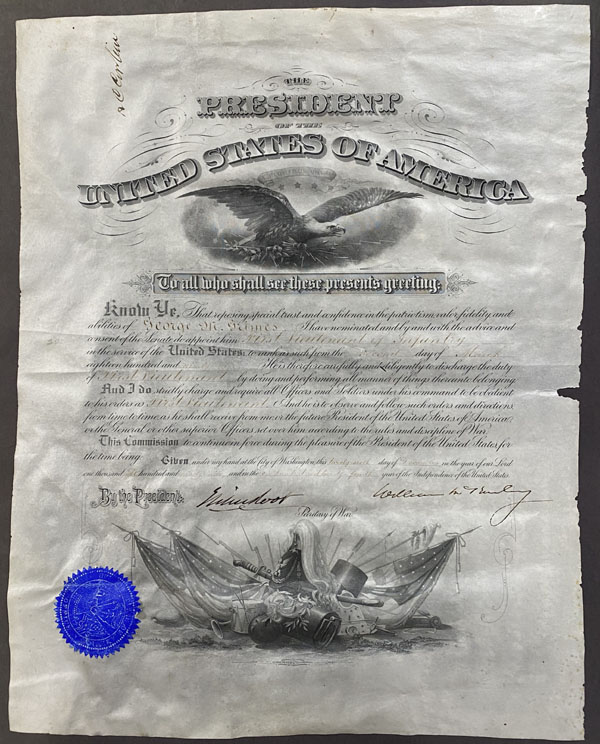 THE
PRESIDENT
OF THE
UNITED STATES OF AMERICA
To all who shall see these presents greeting:
Know Ye, That reposing special trust and confidence in the patriotism, valor, fidelity and
abilities of George M. I have nominated and by and with the advice and
consent of the Senate do appoint him First Lieutenant of Infantry
in the service of the United States: to rank as such from the day of
eighteen hundred and He is therefore carefully and diligently to discharge the duty
of First Lieutenant by doing and performing all manner of things thereunto belonging.
And I do strictly charge and require all Officers and Soldiers under his command to be obedient
to his orders as First Lieutenant And he is to observe and follow such orders and directions
from time to time, as he shall receive from me, or the future President of the United States of America,
or the General or other superior Officers set over him according to the rules and discipline of War.
This Commission to continue in force during the pleasure of the President of the United States for
the time being.
Given, under my hand at the City of Washington, this day of in the year of our Lord
one thousand hundred and and in the year of the Independence of the United States.
By the President: Elihu Root William McKinley
Secretary of War.